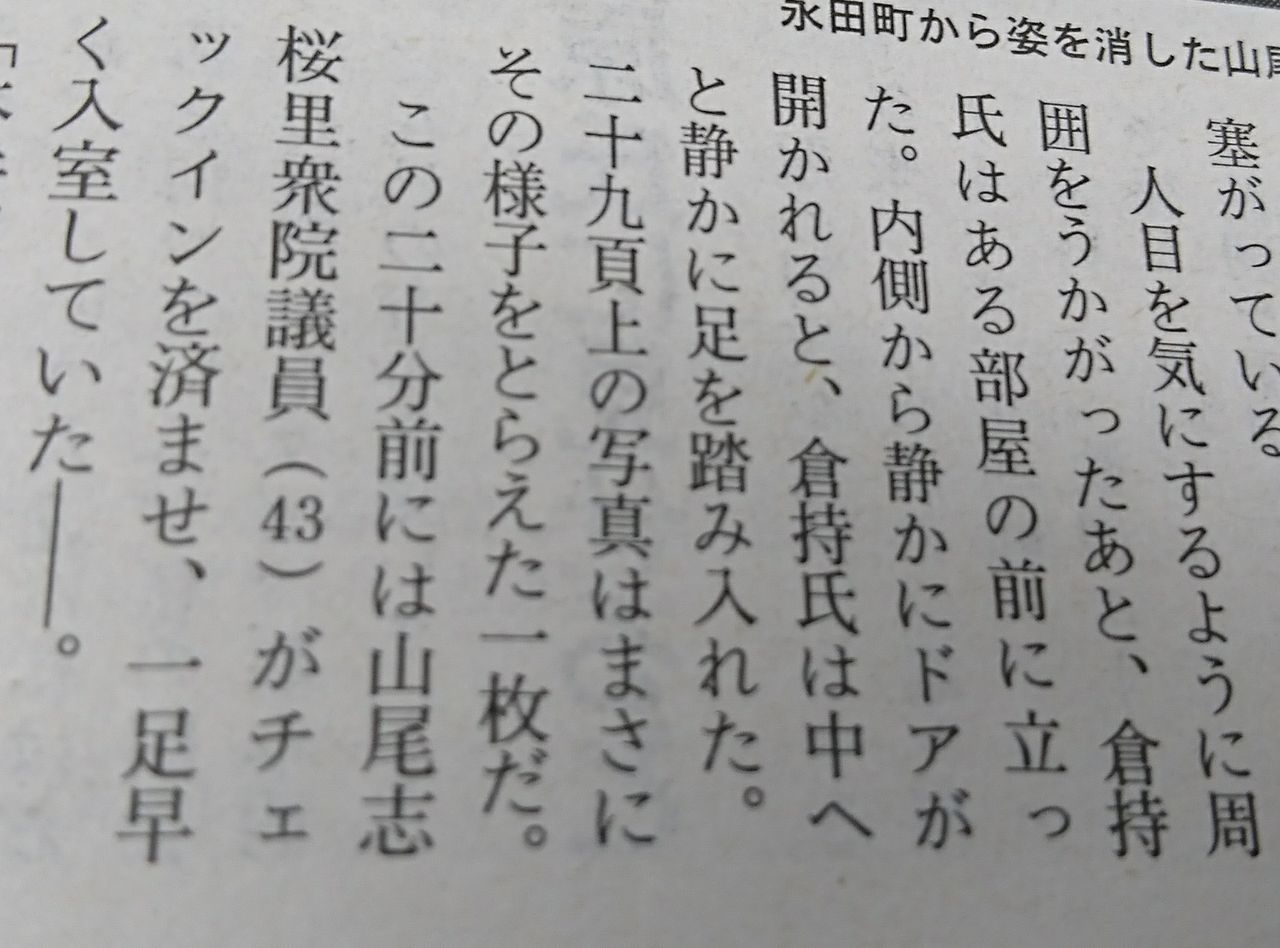 永田町から姿を消した山尾
塞がっている
人目を気にするように周
囲をうかがったあと、倉持
氏はある部屋の前に立っ
た。内側から静かにドアが
開かれると、倉持氏は中へ
と静かに足を踏み入れた。
二十九頁上の写真はまさに
その様子をとらえた一枚だ。
この二十分前には山尾志
桜里衆院議員（43）がチェ
ックインを済ませ、一足早
く入室していた――。